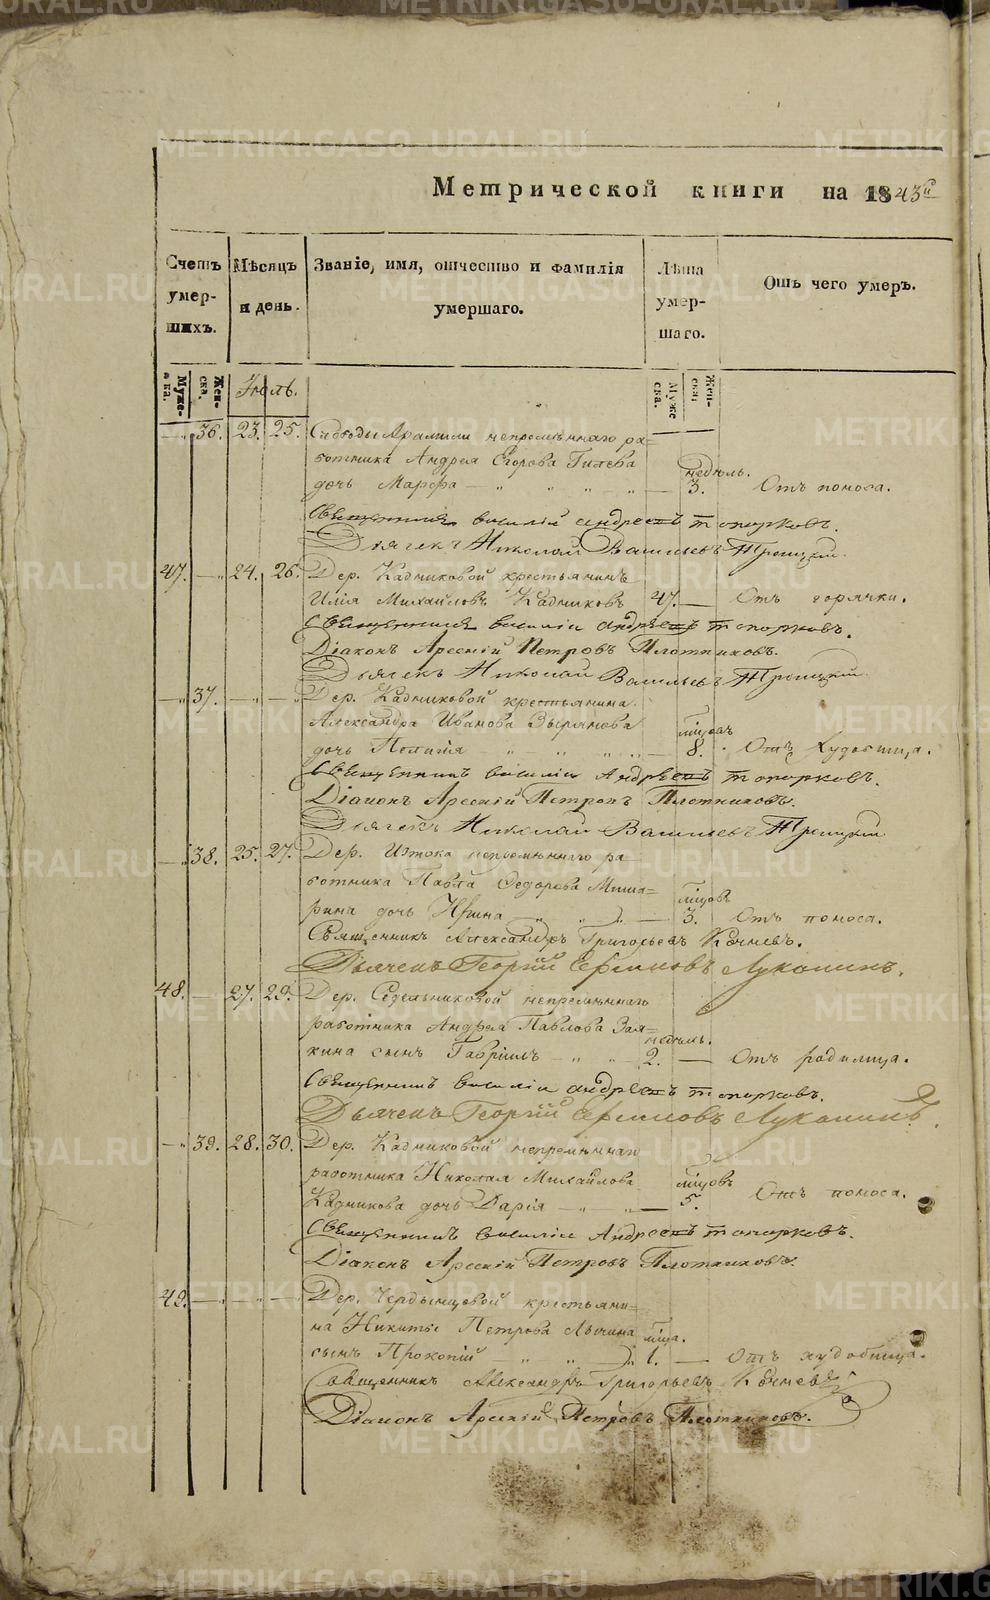 Метрической книги на 1843й
Счетъ умершихъ. Мѣсяцъ и день. Званіе, имя, отчество и фамилія умершаго. Лѣта умершаго. Отъ чего умеръ.
Мужеска. Женска. Іюль. Мужеска. Женска.
36. 23. 25. Слободы Арамили непремѣннаго ра=
ботника Андрея Егорова Гилева недѣль.
дочь Марфа 3. Отъ поноса.
Священникъ Василій Андреевъ Топорковъ.
Дьячекъ Николай Васильевъ Троицкій
47. 24. 26. Дер. Кадниковой крестьянинъ
Илія Михайловъ Кадниковъ 47. Отъ горячки.
Священникъ Василій Андреевъ Топорковъ.
Діаконъ Арсеній Петровъ Плотниковъ.
Дьячекъ Николай Васильевъ Троицкій
37. Дер. Кадниковой крестьянина
Александра Иванова Зырянова мѣсяцовъ
дочь Пелагія 8. Отъ худобища.
Священникъ Василій Андреевъ Топорковъ.
Діаконъ Арсеній Петровъ Плотниковъ.
Дьячекъ Николай Васильевъ Троицкій
38. 25. 27. Дер. Истока непремѣннаго ра
ботника Павла Федорова Миша= мѣсяцовъ
рина дочь Ирина 3. Отъ поноса.
Священникъ Александръ Григорьевъ Кочневъ.
Дьячекъ Георгій Ефимовъ Луканинъ.
48. 27. 29. Дер. Седельниковой непремѣннаго
работника Андрея Павлова Зая= недѣль.
кина сынъ Гавріилъ 2. Отъ родимца.
Священникъ Василій Андреевъ Топорковъ.
Дьячекъ Георгій Ефимовъ Луканинъ.
39. 28. 30. Дер. Кадниковой непремѣннаго
работника Николая Михайлова мѣсяцовъ
Кадникова дочь Дарія 5. Отъ поноса.
Священникъ Василій Андреевъ Топорковъ.
Діаконъ Арсеній Петровъ Плотниковъ.
49. Дер. Чердынцовой крестьяни=
на Никиты Петрова мѣсяца.
сынъ Прокопій 1. Отъ худобища.
Священникъ Александръ Григорьевъ Кочневъ
Діаконъ Арсеній Петровъ Плотниковъ.
METRIKI.GASO-URAL.RU